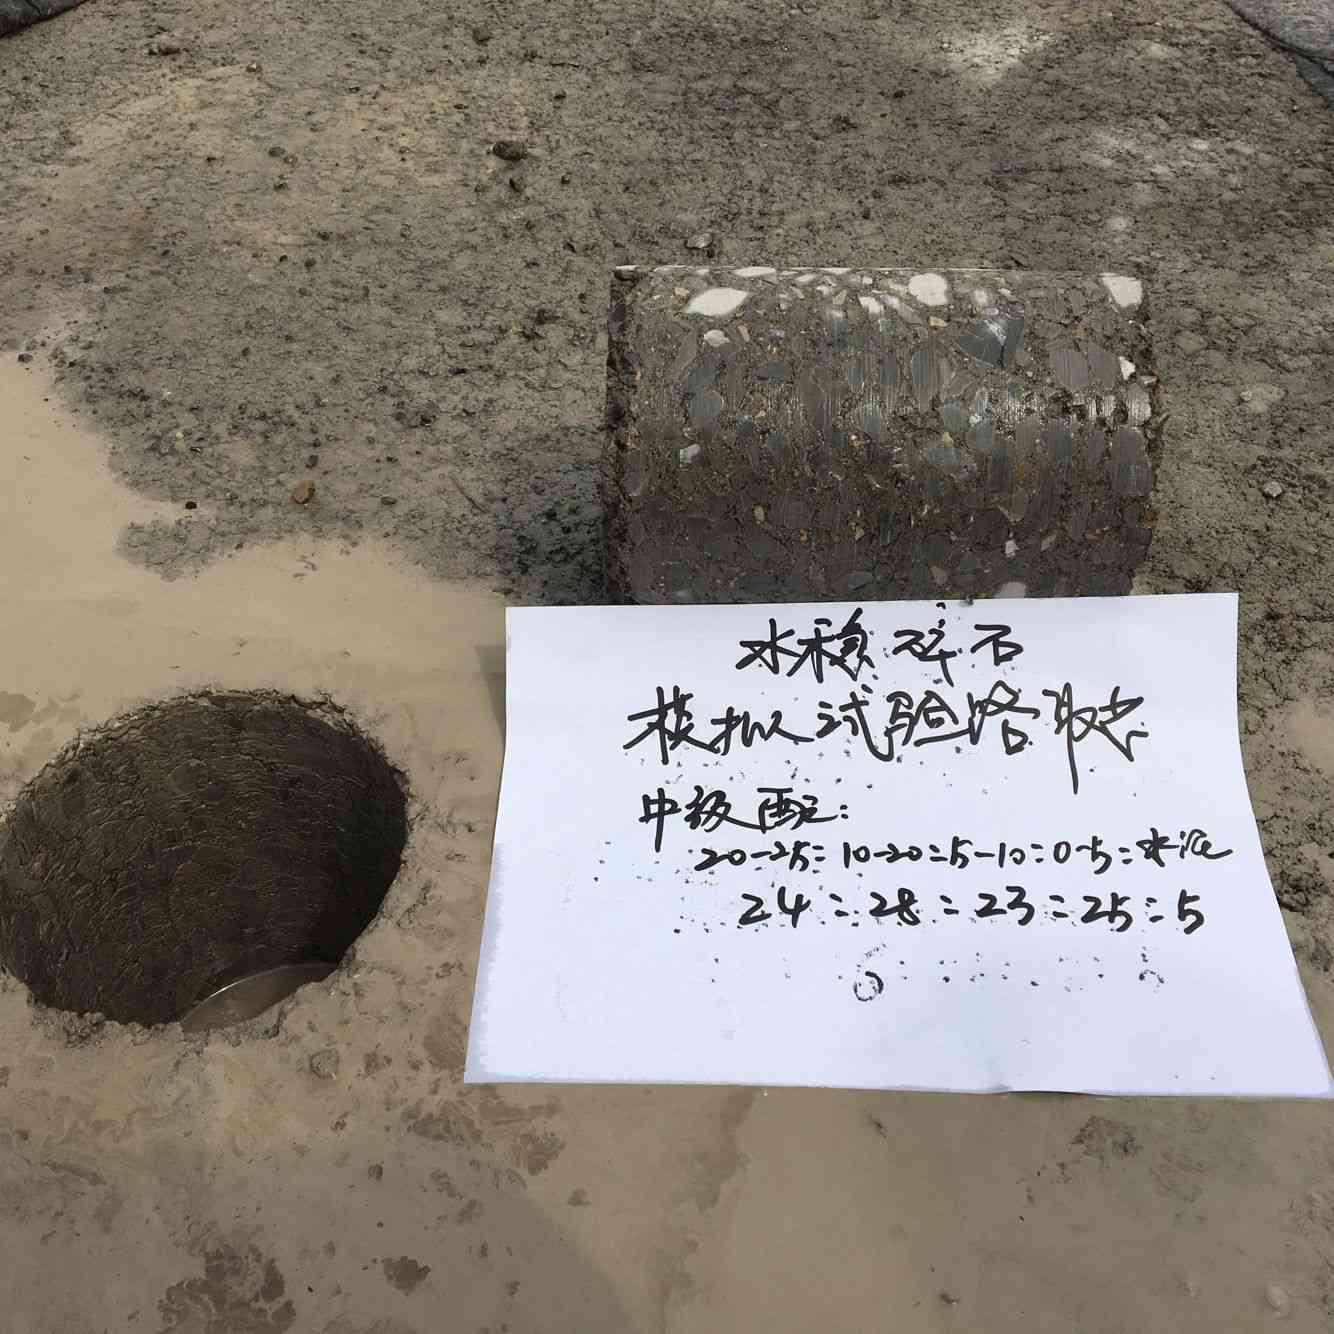 水稳碎石
模拟试验路取芯
中级配:
20-25:10-20:5-10:0-5:水泥
24:28:23:25:5